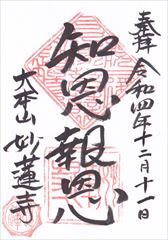 奉拝 令和四年十二月十一日
知恩報恩
大本山 妙蓮寺